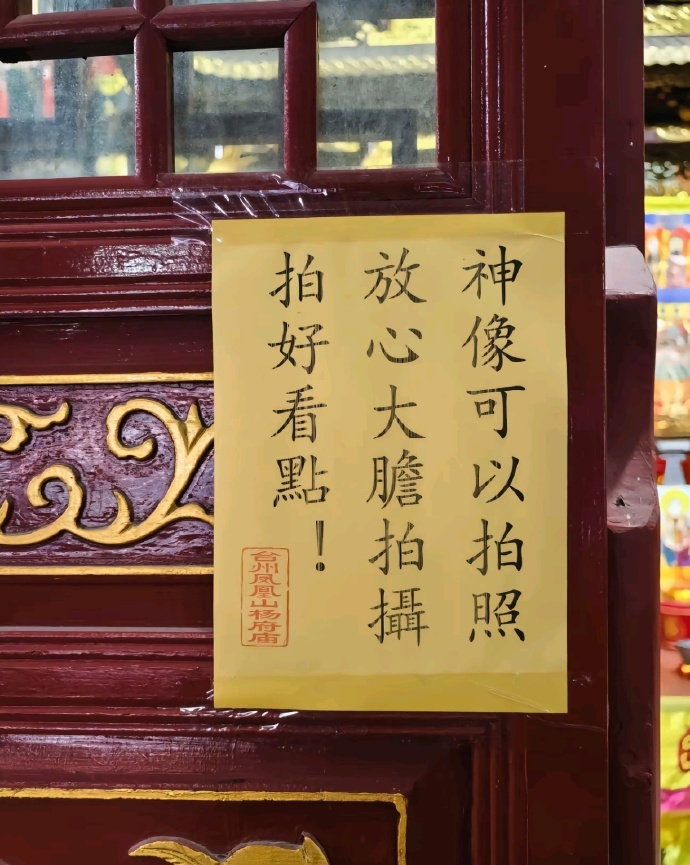 神像可以拍照
放心大膽拍攝
拍好看點！
台州凤凰山杨府庙